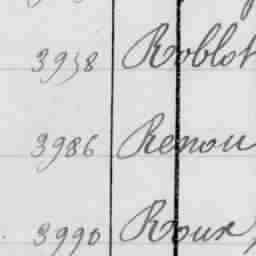 3938 Roblot
3986 Renou
3990 Roux